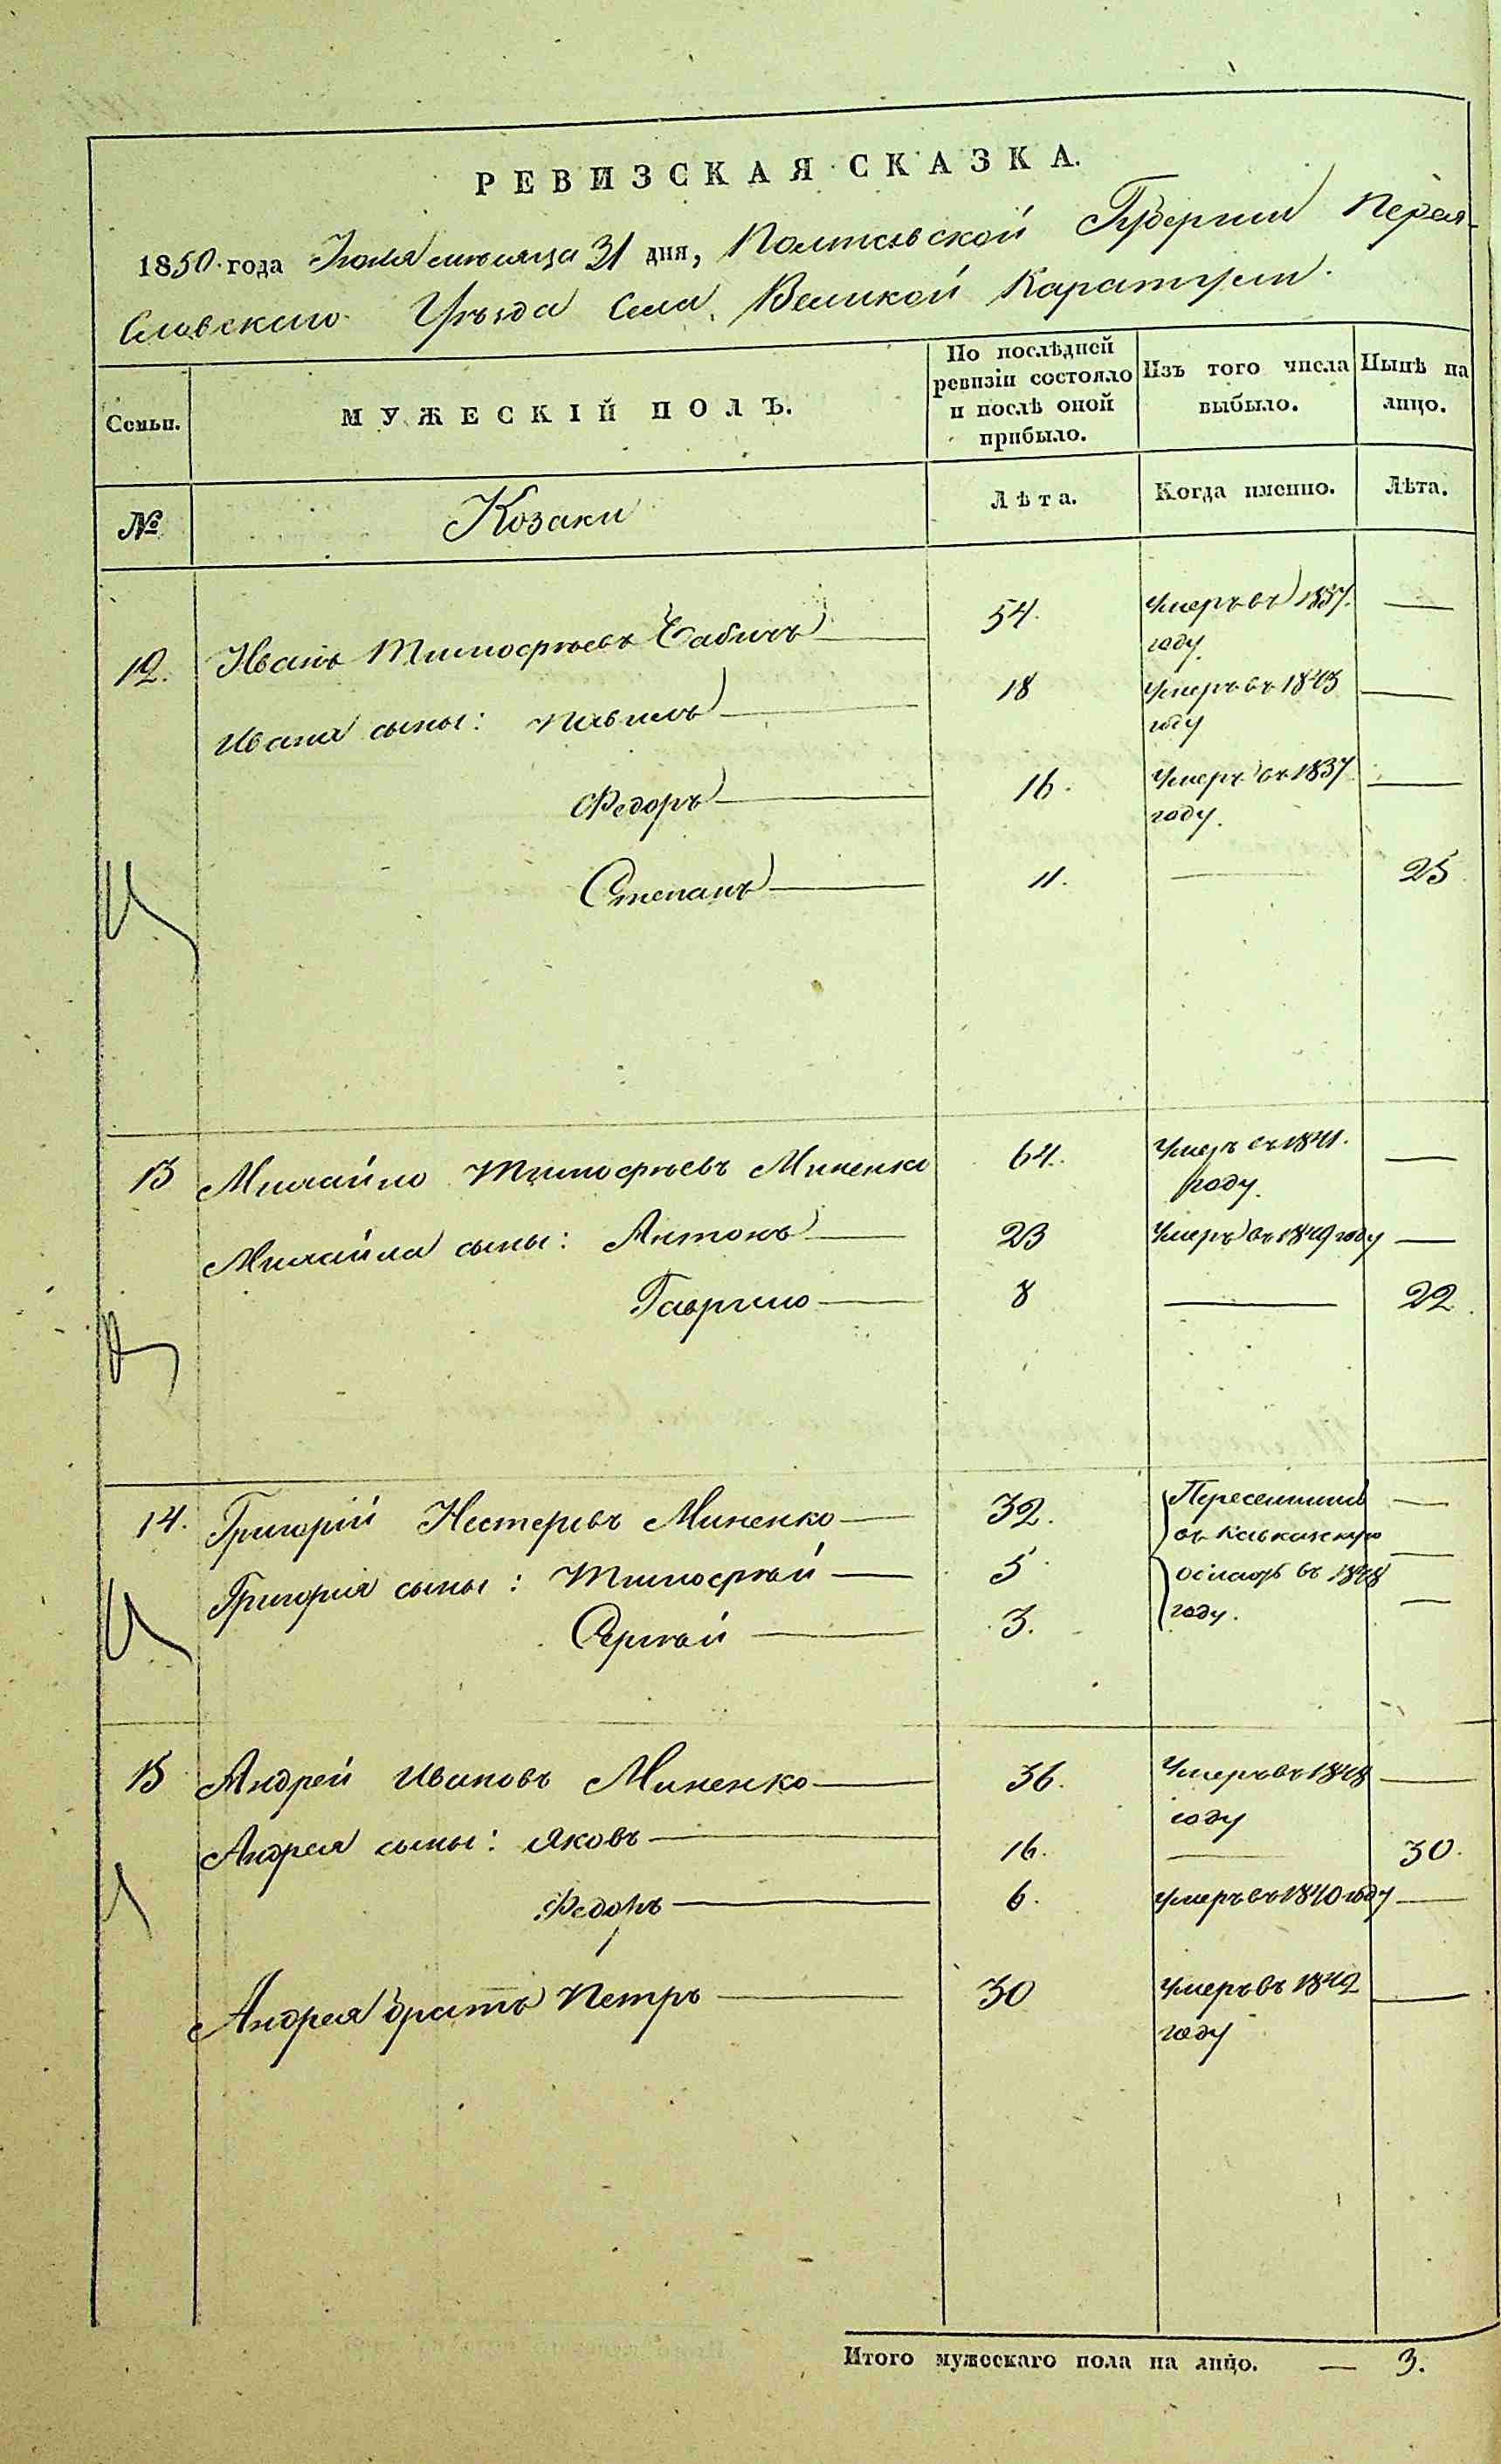 РЕВИЗСКАЯ СКАЗКА.
1850 года Июля месяца 31 дня, Полтавской Губернии Перея-
славского Уѣзда Села Великой Каратули.
Семьи.
МУЖЕСКІЙ ПОЛЪ.
По послѣдней ревизіи состояло и послѣ оной прибыло.
Изъ того числа выбыло.
Нынѣ на лицо.
№
Козаки
Лѣта.
Когда именно.
Лѣта.
12. Иванъ Тимофѣевъ 54. Умеръ въ 1837. году. —
Ивана сыны: Павелъ — 18 Умеръ въ 1843 году —
Федоръ — 16. Умеръ въ 1837 году. —
Степанъ — 11. — 25
13 Михайло Тимофѣевъ Миненко 64. Умеръ въ 1841. году. —
Михайла сыны: Антонъ — 23 Умеръ въ 1849 году —
Гаврило — 8 — 22.
14. Григорій Нестеровъ Миненко — 32. Переселился —
въ Кавказскую
Григорія сыны: Тимофѣй — 5 область въ 1848 —
Сергѣй — 3. году. —
15 Андрей Ивановъ Миненко — 36. Умеръ въ 1848 году —
Андрея сыны: Яковъ — 16. — 30.
Федоръ — 6. Умеръ въ 1840 году —
Андрея братъ Петръ — 30 Умеръ въ 1842 году —
Итого мужескаго пола на лицо. — 3.